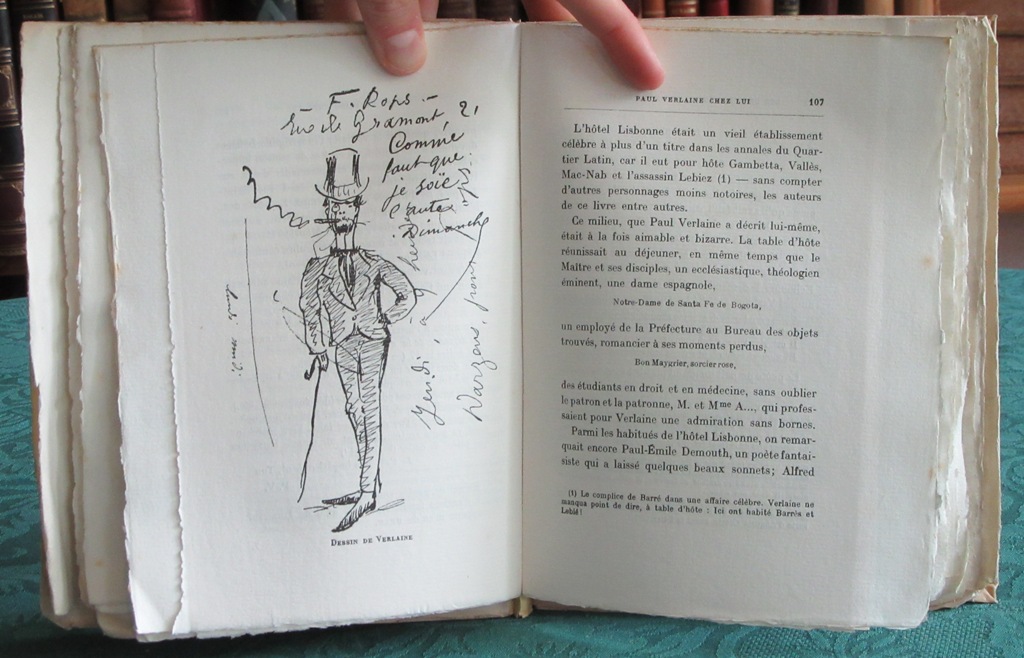 F. Rops —
Gramont, 2,
Comme
faut que
je soie
Dimanche
heure
Jeudi, à 9
DESSIN DE VERLAINE
PAUL VERLAINE CHEZ LUI 107
L'hôtel Lisbonne était un vieil établissement
célèbre à plus d'un titre dans les annales du Quar-
tier Latin, car il eut pour hôte Gambetta, Vallès,
Mac-Nab et l'assassin Lebiez (1) — sans compter
d'autres personnages moins notoires, les auteurs
de ce livre entre autres.
Ce milieu, que Paul Verlaine a décrit lui-même,
était à la fois aimable et bizarre. La table d'hôte
réunissait au déjeuner, en même temps que le
Maître et ses disciples, un ecclésiastique, théologien
éminent, une dame espagnole,
Notre-Dame de Santa Fe de Bogota,
un employé de la Préfecture au Bureau des objets
trouvés, romancier à ses moments perdus,
Bon Maygrier, sorcier rose,
des étudiants en droit et en médecine, sans oublier
le patron et la patronne, M. et Mme A..., qui profes-
saient pour Verlaine une admiration sans bornes.
Parmi les habitués de l'hôtel Lisbonne, on remar-
quait encore Paul-Émile Demouth, un poète fantai-
siste qui a laissé quelques beaux sonnets; Alfred
(1) Le complice de Barré dans une affaire célèbre. Verlaine ne
manqua point de dire, à table d'hôte : Ici ont habité Barrès et
Lebié !